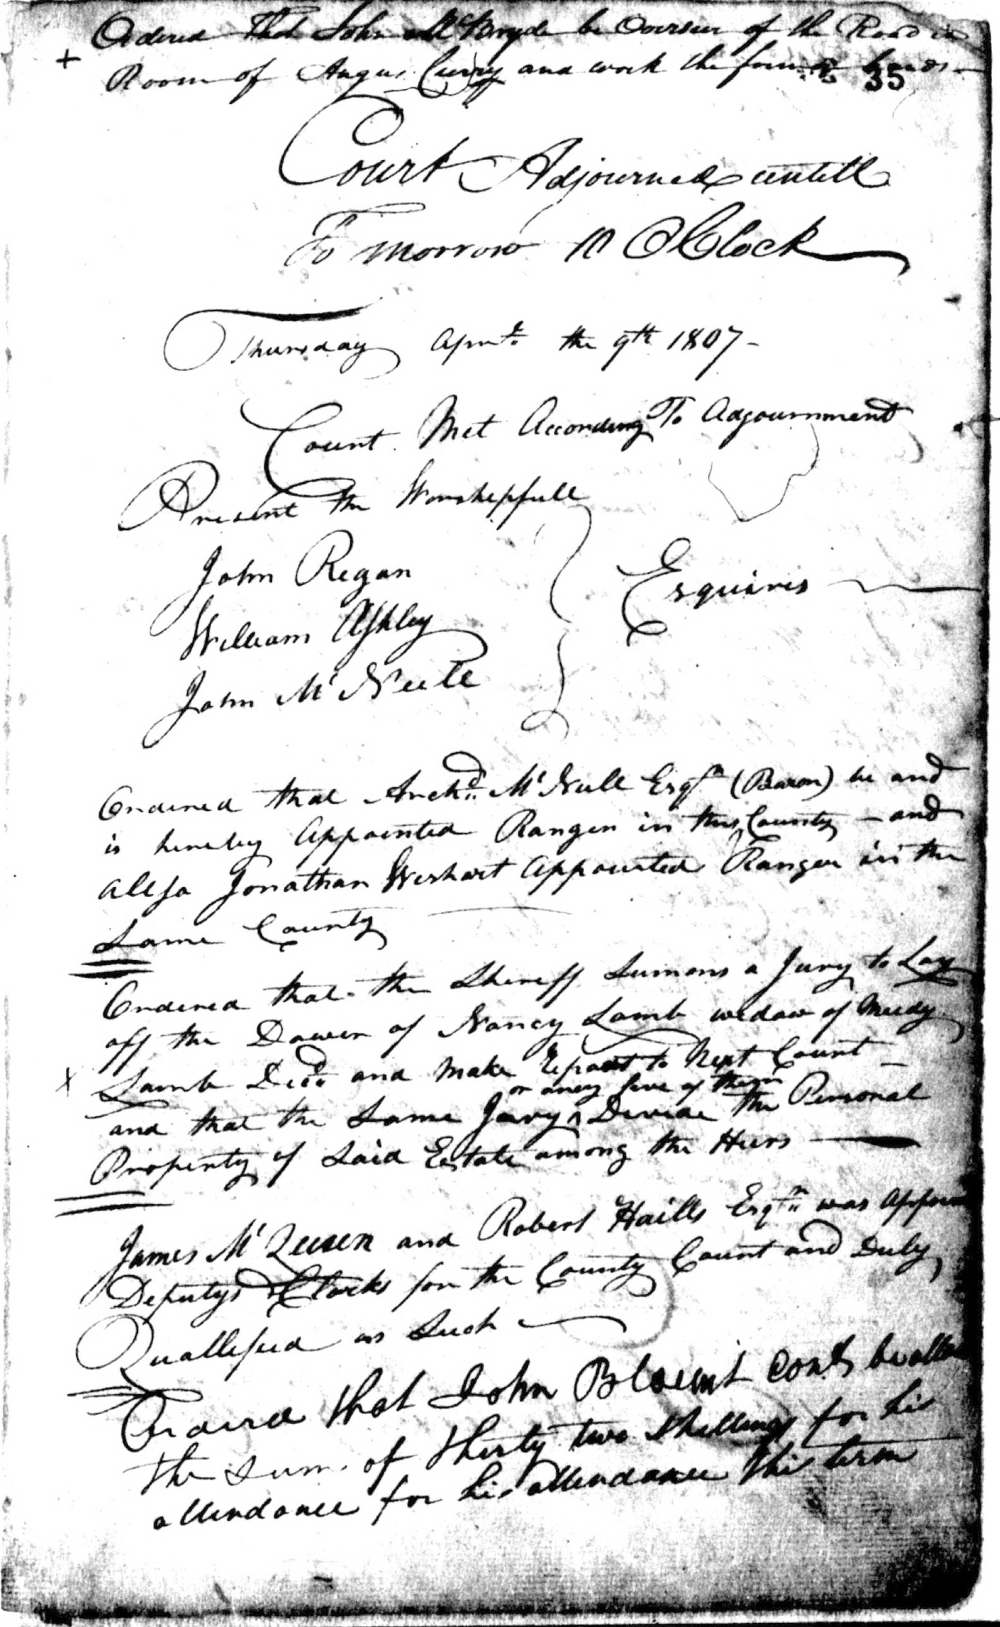 + Ordered that John McBryde be Oversur of the Road in
Room of Angus Curry and work the hands
35
Court Adjourned untill
To morrow 10 OClock
Thursday the 9th 1807 -
Court Met According To Adjournment
Present the Worshipfull
John Regan
William Ashley
John Mc Neill
Esquires
Ordered that Archd. Mc Neill Esqr (Baron) be and
is hereby Appointed Ranger in this County - and
allso Jonathan Appointed Ranger in the
Same County
Ordered that the Sheriff Sumons a Jury to Lay
off the Dower of Nancy Lamb widow of Meedy
x Lamb Decd and Make Report to Next Court -
or aney five of them
and that the Same Jury ^ Devide the Personal
Property of Said Estate among the Heirs
James Mc Queen and Robert Haills Esqrs was
Deputys Clarks for the County Court and Duly
Quallified as Such
Ordered that John Blount Const be
the Sum of thirty two Shillings for his
attendance for his attendance this term